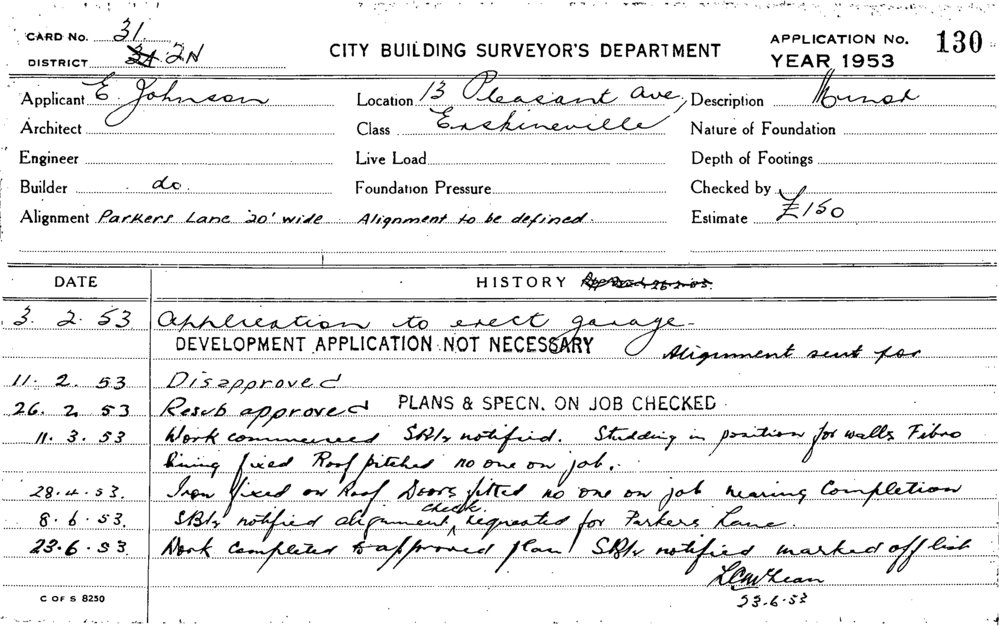 CARD No. 31.
DISTRICT 2N
CITY BUILDING SURVEYOR'S DEPARTMENT
APPLICATION No. 130
YEAR 1953
Applicant E. Johnson
Location 13 Pleasant Ave,
Description Minor
Architect
Class Erskineville
Nature of Foundation
Engineer
Live Load
Depth of Footings
Builder do.
Foundation Pressure
Checked by
Alignment Parkers Lane 20' wide Alignment to be defined.
Estimate £150
DATE
HISTORY
3. 2. 53 Application to erect garage.
DEVELOPMENT APPLICATION NOT NECESSARY
Alignment sent for
11. 2. 53 Disapproved
26. 2 53 Resub approved PLANS & SPECN. ON JOB CHECKED
11. 3. 53 Work commenced notified. Studding in position for walls Fibro
lining fixed Roof pitched no one on job.
28.4.53. Iron fixed on Roof Doors fitted no one on job nearing Completion
8.6.53. notified alignment check requested for Parkers Lane.
23.6.53 Work completed to approved plan notified marked off list
23.6.53
C OF S 8250